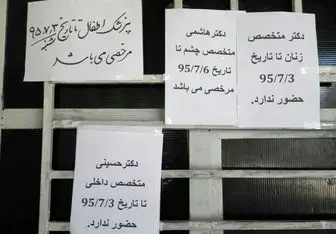 دکتر متخصص
زنان تا تاریخ
95/7/3
حضور ندارد.
دکترهاشمی
متخصص چشم تا
تاریخ 95/7/6
مرخصی می باشد
پزشک اطفال تا تاریخ ۹۵٫۷٫۳
مرخصی می باشد
دکترحسینی
متخصص داخلی
تا تاریخ 95/7/3
حضور ندارد.